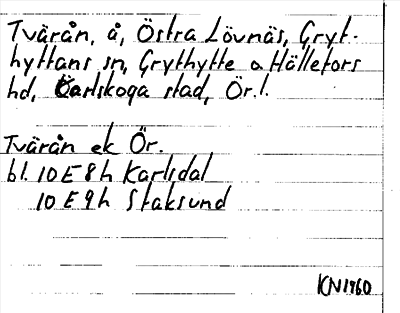 Tvärån, å, Östra Lövnäs, Gryt-
hyttans sn, Grythytte o Hällefors
hd, Karlskoga stad, Ör.l.
Tvärån ek Ör.
bl. 10E8h Karlsdal
10E9h Staksund
KN1960